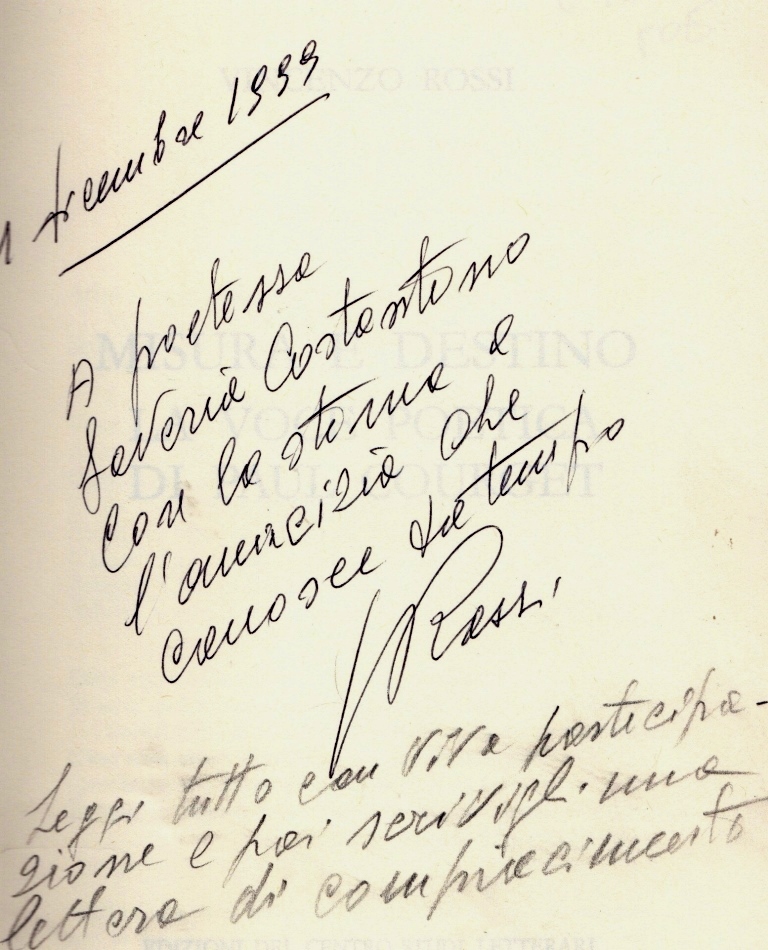 VINCENZO ROSSI
1 dicembre 1999
A poetessa
Saveria Costantino
con la stima e
l'amicizia che
conosce da tempo
V Rossi
MISURA E DESTINO
LA VOCE POETICA
DI PAUL COURGET
Leggi tutto con viva partecipa-
zione e poi scrivigli una
lettera di compiacimento
EDIZIONI DEL CENTRO STUDI LETTERARI